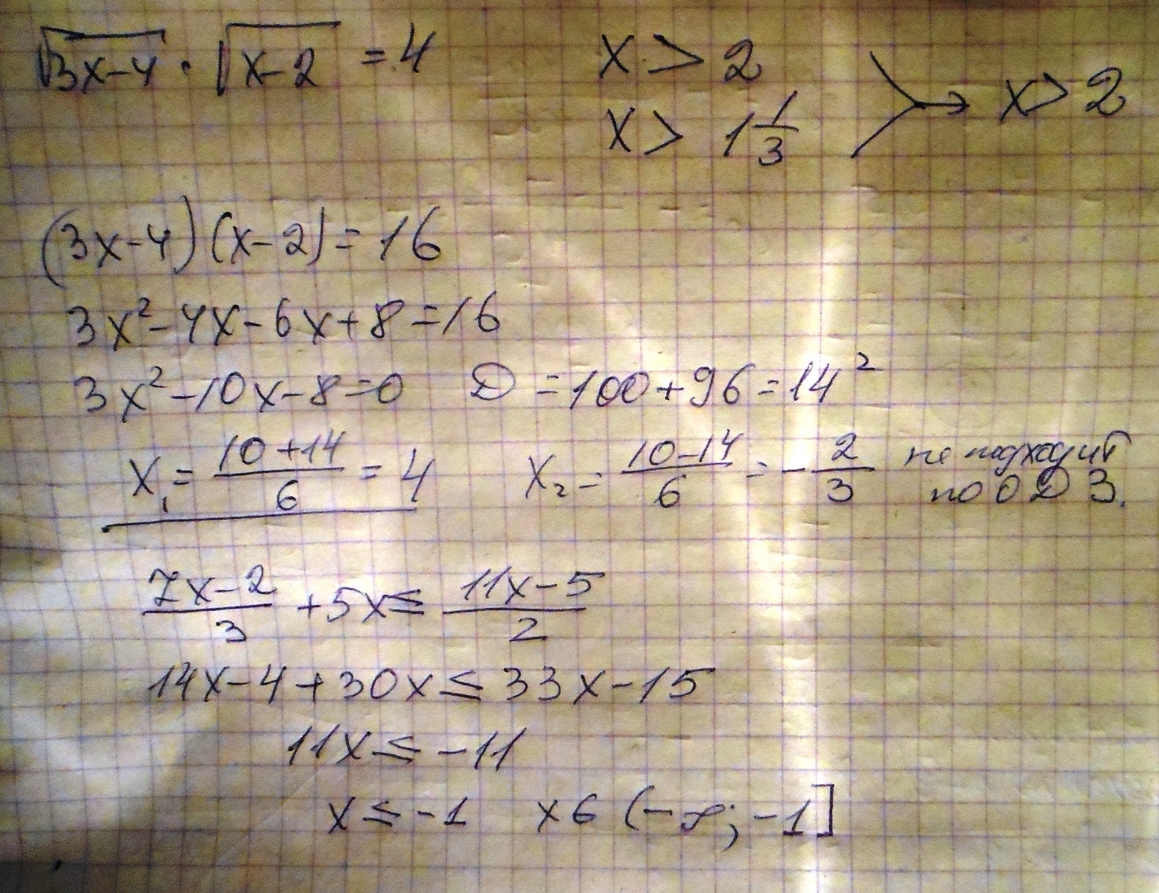 √3x-4 · √x-2 = 4 x > 2 x > 1 1/3 → x > 2
(3x-4)(x-2) = 16
3x² - 4x - 6x + 8 = 16
3x² - 10x - 8 = 0 D = 100 + 96 = 14²
x₁ = 10+14/6 = 4 x₂ = 10-14/6 = -2/3 не подходит по ОДЗ.
7x-2/3 + 5x ≤ 11x-5/2
14x - 4 + 30x ≤ 33x - 15
11x ≤ -11
x ≤ -1 x ∈ (-∞; -1]